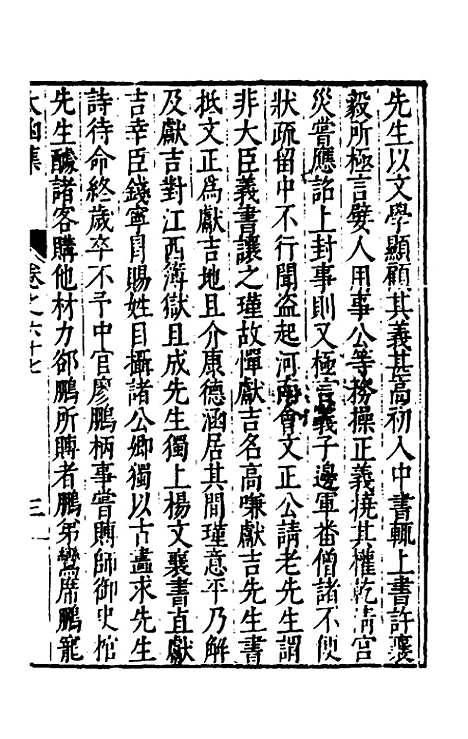 先生以文學顯顧其義甚高初入中書輒上書許襄
毅所極言嬖人用事公等務操正義撓其權乾清宮
災嘗應詔上封事則又極言義子邊軍番僧諸不便
狀疏留中不行聞盜起河南會文正公請老先生謂
非大臣義書讓之瑾故憚獻吉名高嗛獻吉先生書
抵文正為獻吉地且介康德涵居其間瑾意平乃解
及獻吉對江西簿獄且成先生獨上楊文襄書直獻
吉幸臣錢寧冒賜姓目攝諸公卿獨以古畫求先生
詩待命終歲卒不予中官廖鵬柄事嘗賻師御史棺
先生醵諸客購他材力卻鵬所賻者鵬弟鸞席鵬寵
太函集
卷之六十七
三